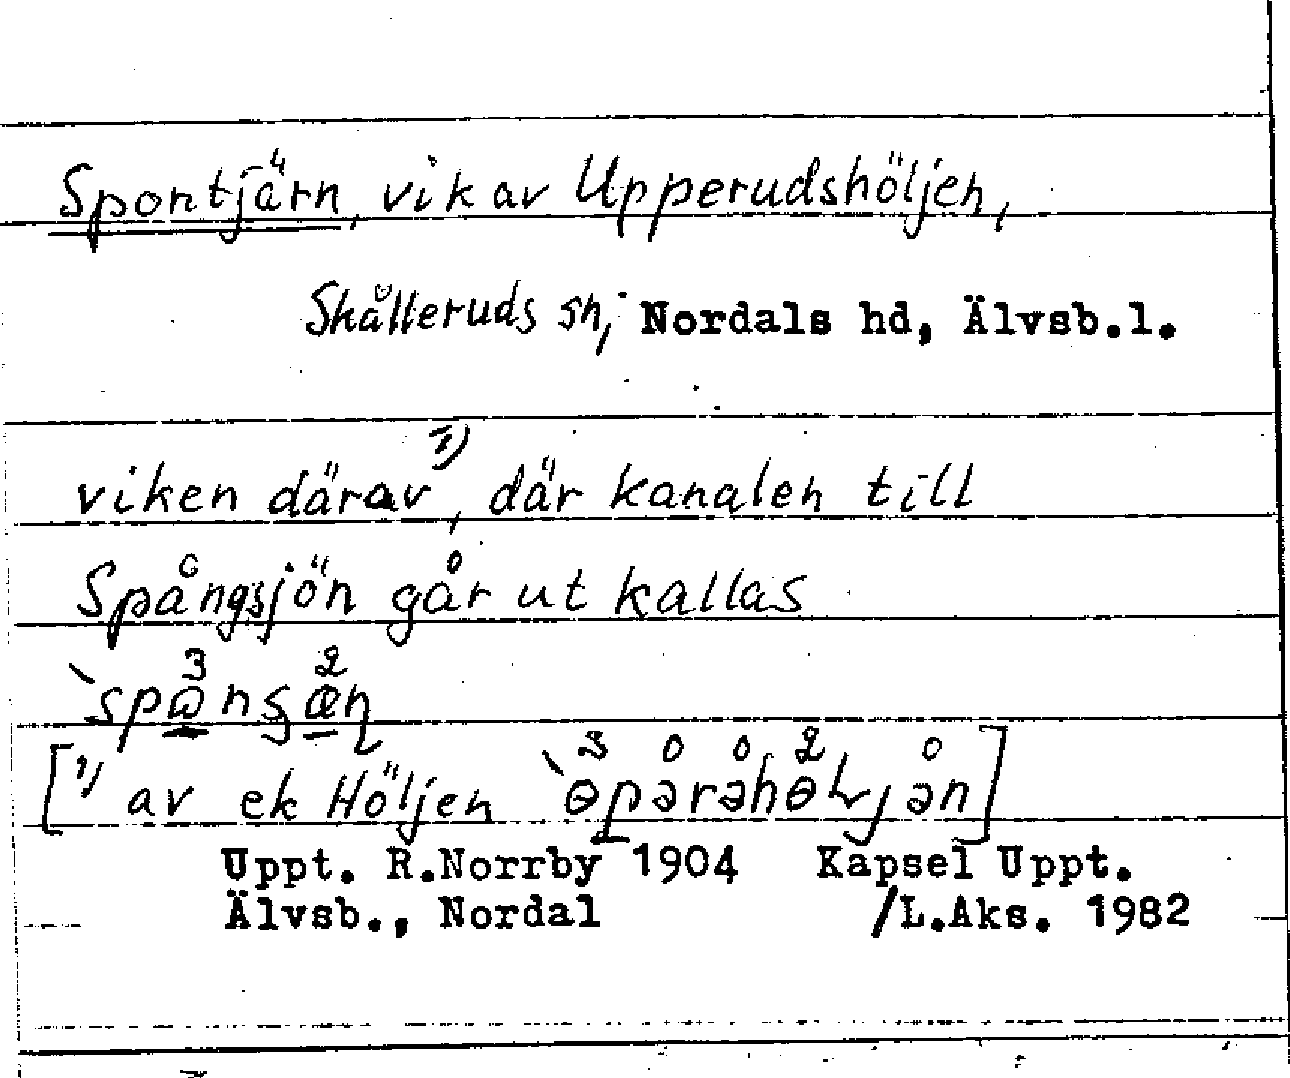 Spontjärn, vik av Upperudshöljen,
Skålleruds sn, Nordals hd, Älvsb.l.
viken därav¹⁾, där kanalen till
Spångsjön går ut kallas
[¹⁾ av ek Höljen
Uppt. R.Norrby 1904 Kapsel Uppt.
Älvsb., Nordal /L.Aks. 1982